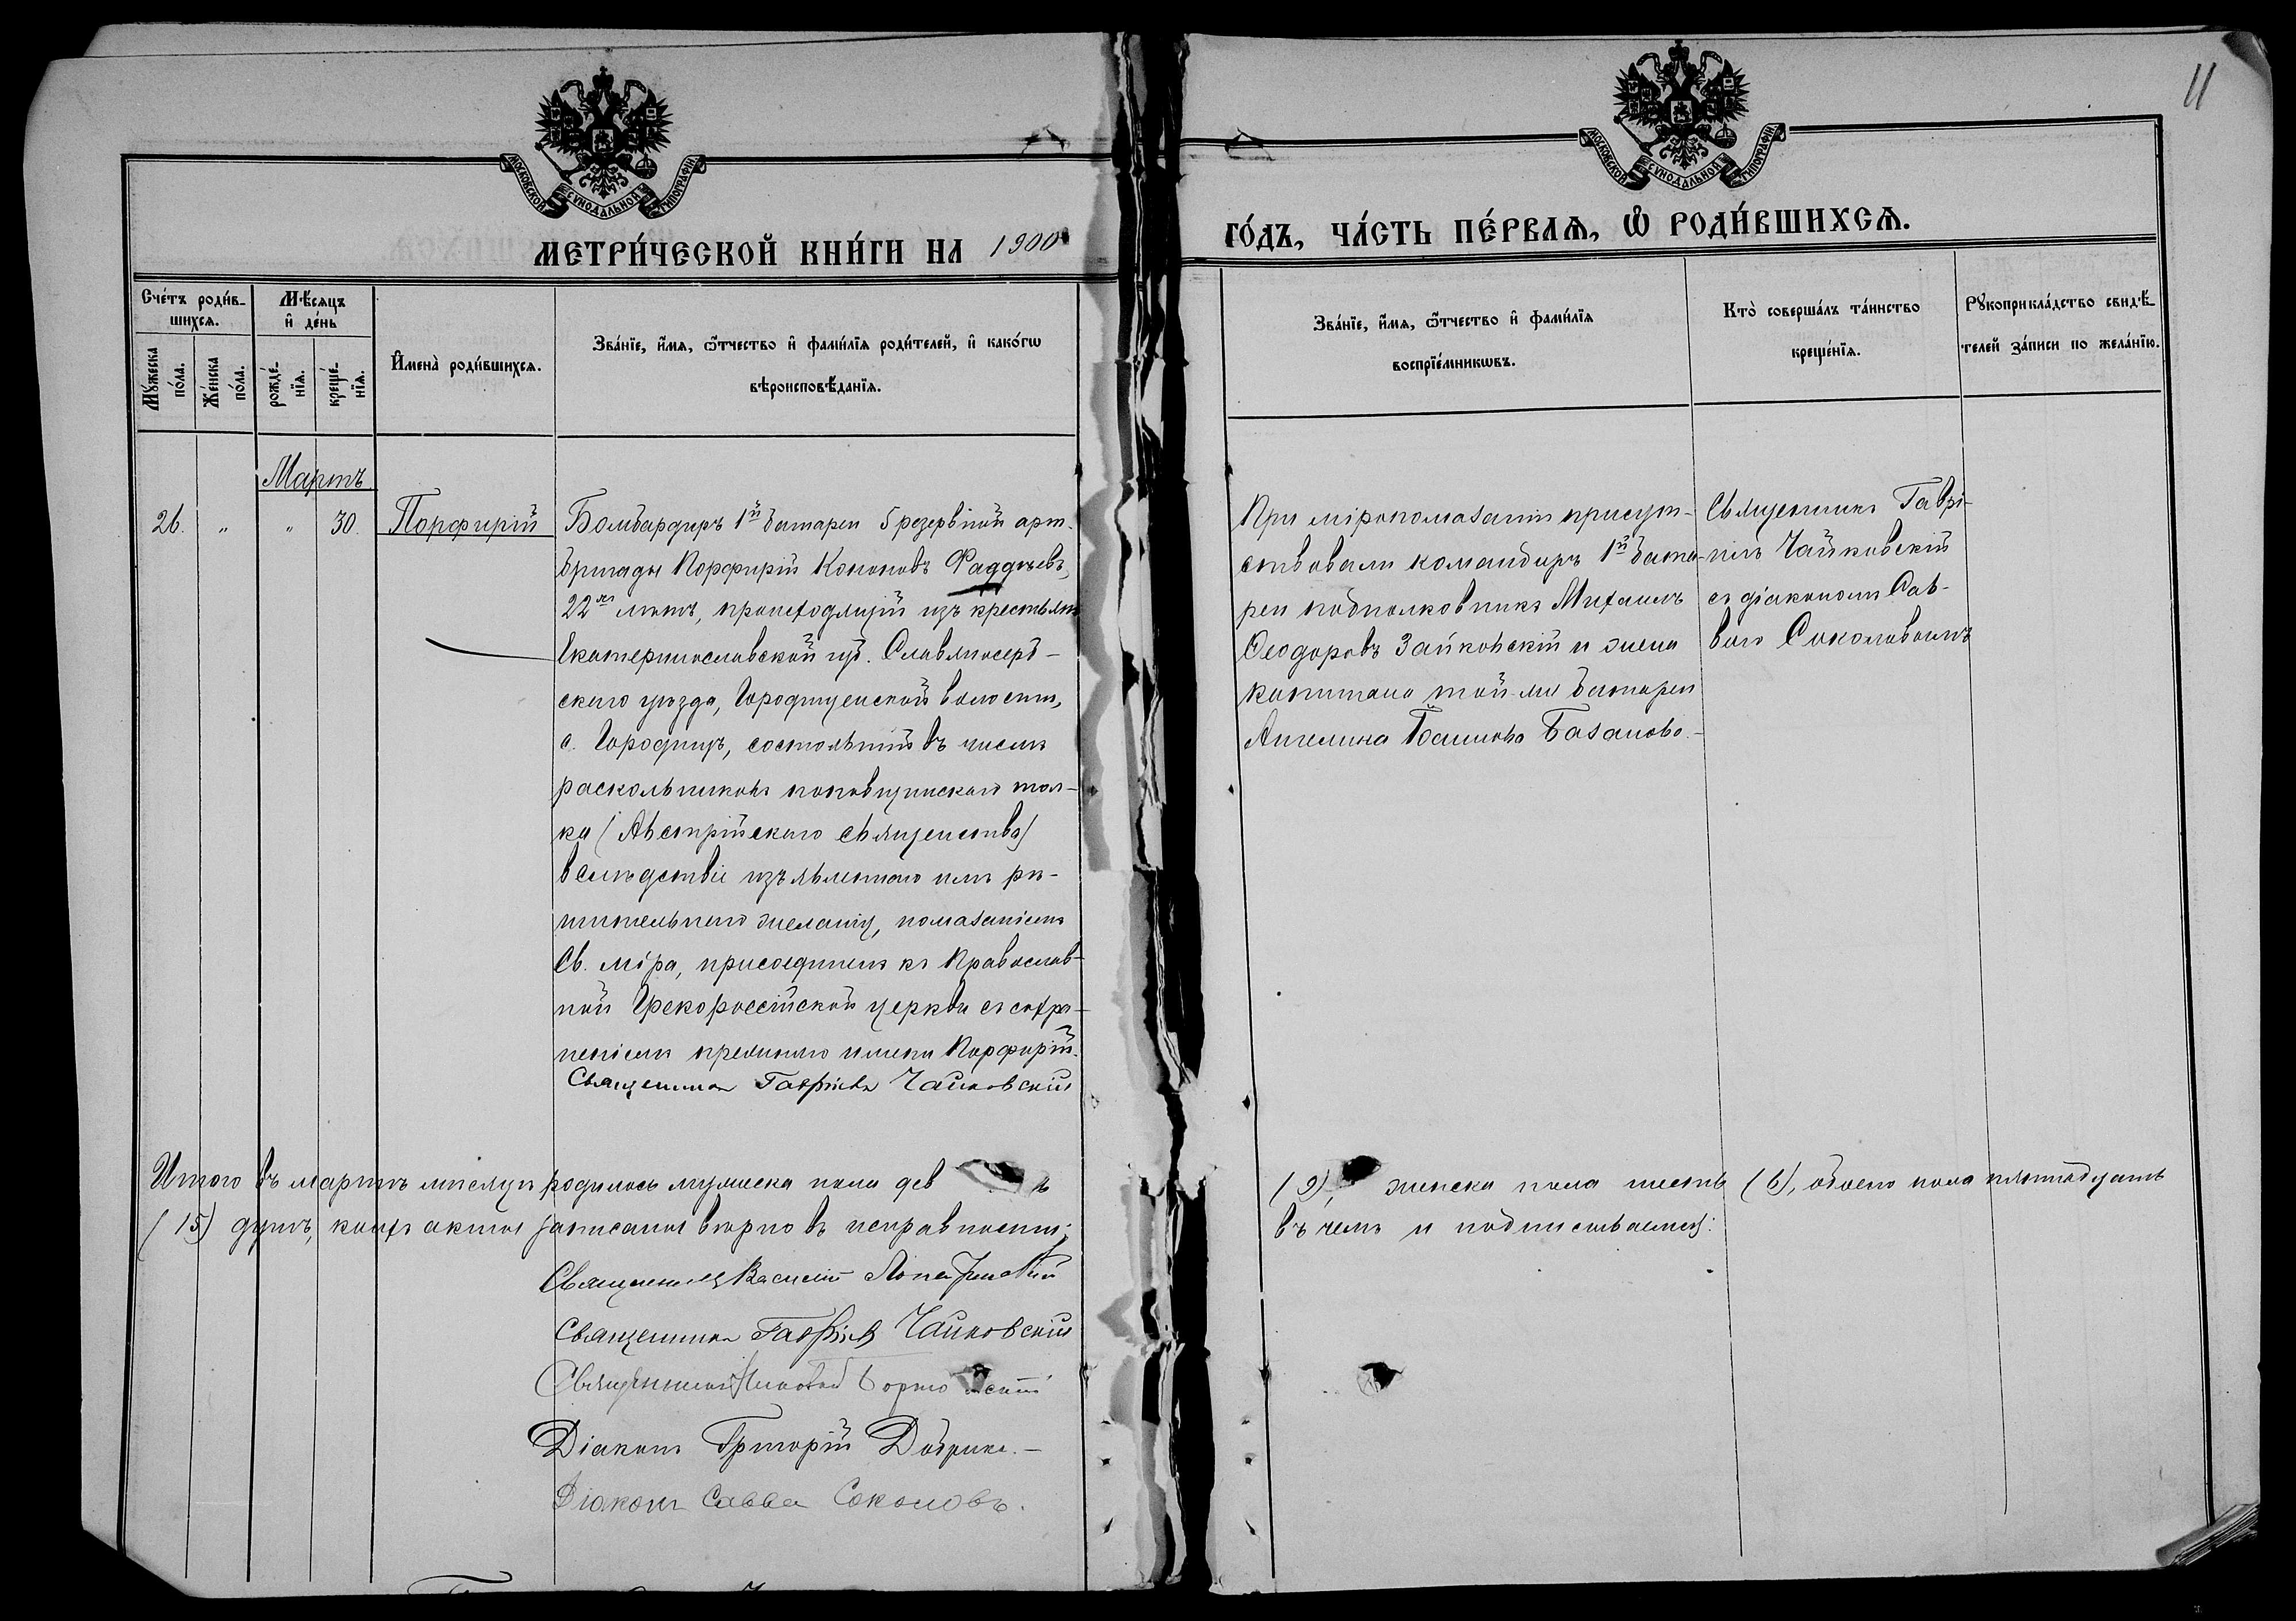 11
МОСКОВСКОЙ СУНОДАЛЬНОЙ ТИПОГРАФІИ
МОСКОВСКОЙ СУНОДАЛЬНОЙ ТИПОГРАФІИ
МЕТРИ́ЧЕСКОЙ КНИ́ГИ НА 1900
ГО́ДЪ, ЧА́СТЬ ПЕ́РВАѦ, Ѽ РОДИ́ВШИХСѦ.
Сче́тъ роди́в-
шихсѧ.
Мꙋ́жеска по́ла.
Же́нска по́ла.
Мѣ́сѧцъ
и҆ де́нь
рожде́-
нїѧ.
креще́-
нїѧ.
И҆мена̀ роди́вшихсѧ.
Зва́нїе, и҆́мѧ, ѻ҆́тчество и҆ фами́лїѧ роди́телей, и҆ како́гѡ
вѣроисповѣ́данїѧ.
Зва́нїе, и҆́мѧ, ѻ҆́тчество и҆ фами́лїѧ
воспрїе́мникѡвъ.
Кто̀ соверша́лъ та́инство
креще́нїѧ.
Рꙋкоприкла́дство свидѣ́-
телей за́писи по жела́нїю.
Мартъ
26. " " 30. Порфирій
Бомбардиръ 1й батареи 5 резервной арт.
бригады Порфирій Кононовъ Фаддѣевъ,
22хъ лѣтъ, происходящій изъ крестьянъ
Екатеринославской губ. Славяносерб-
скаго уѣзда, Городищенской волости,
с. Городищъ, состоявшій въ числѣ
раскольниковъ поповщинскаго тол-
ка (Австрійскаго священства)
вслѣдствіе изъявленнаго имъ рѣ-
шительнаго желанія, помазаніемъ
Св. мѵра, присоединенъ къ Православ-
ной Грекороссійской церкви съ сохра-
неніемъ прежняго имени Порфирій.
Священникъ Гавріилъ Чайковскій
При мѵропомазаніи присут-
ствовали командиръ 1й бата-
реи подполковникъ Михаилъ
Ѳеодоровъ Зайковскій и жена
капитана той-же батареи
Ангелина Базанова.
Священникъ Гаврі-
илъ Чайковскій
съ діакономъ Сав-
вою Соколовымъ
Итого въ мартѣ мѣсяцѣ родилось мужеска пола дев ь
(9), женска пола шесть (6), обоего пола пятнадцать
(15) душъ, коихъ акты записаны вѣрно въ исправности;
въ чемъ и подписываемся:
Священникъ Василій
Священникъ Гавріилъ Чайковскій
Священникъ
Діаконъ Григорій
Діаконъ Савва Соколовъ.